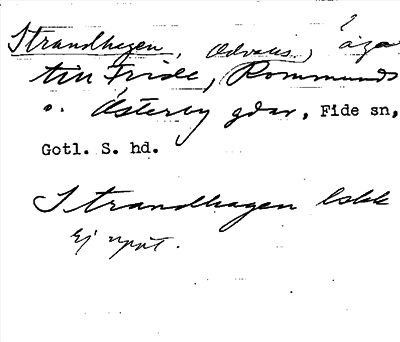 Strandhegen, Odvalls, äga
till Fride, Rommunds
o. Österby gdar, Fide sn,
Gotl. S. hd.
Strandhagen lskk
Ej uppt.